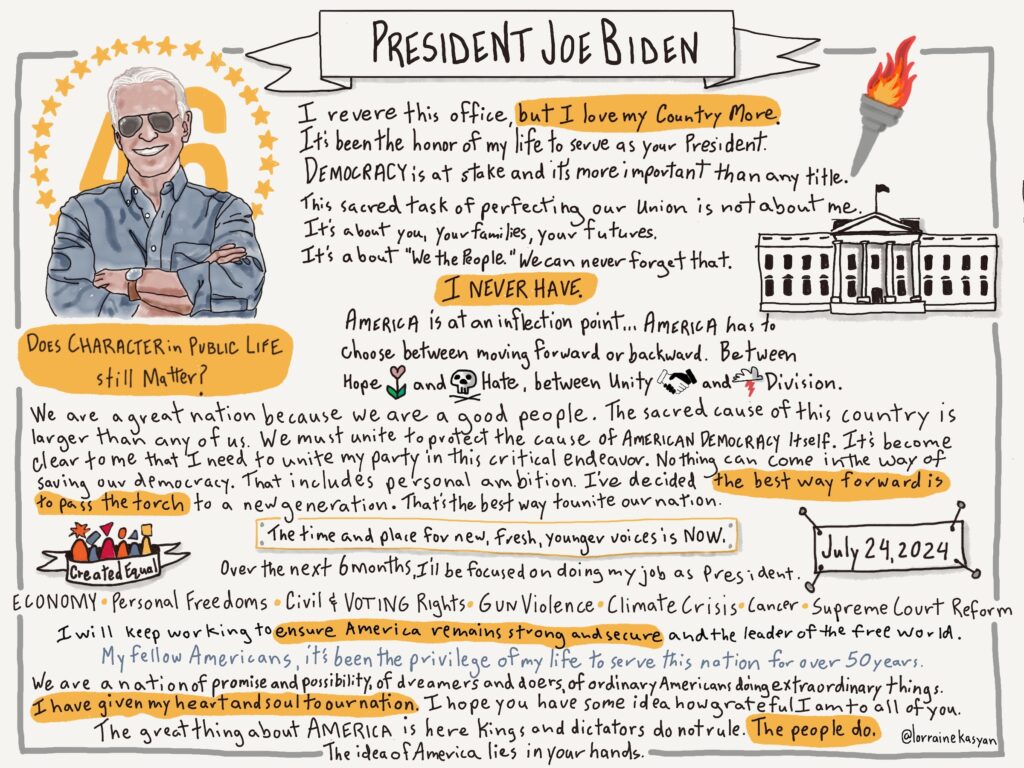 PRESIDENT JOE BIDEN
46
I revere this office, but I love my Country More.
It's been the honor of my life to serve as your President.
DEMOCRACY is at stake and it's more important than any title.
This sacred task of perfecting our Union is not about me.
It's about you, your families, your futures.
It's about "We the People." We can never forget that.
I NEVER HAVE.
DOES CHARACTER in PUBLIC LIFE
still Matter?
AMERICA is at an inflection point... AMERICA has to
choose between moving forward or backward. Between
Hope and Hate, between Unity and Division.
We are a great nation because we are a good people. The sacred cause of this country is
larger than any of us. We must unite to protect the cause of AMERICAN DEMOCRACY Itself. It's become
clear to me that I need to unite my party in this critical endeavor. Nothing can come in the way of
saving our democracy. That includes personal ambition. I've decided the best way forward is
to pass the torch to a new generation. That's the best way to unite our nation.
Created Equal
The time and place for new, fresh, younger voices is NOW.
July 24, 2024
Over the next 6 months, I'll be focused on doing my job as President.
ECONOMY • Personal Freedoms • Civil & VOTING Rights • GUN Violence • Climate Crisis • Cancer • Supreme Court Reform
I will keep working to ensure America remains strong and secure and the leader of the free world.
My fellow Americans, it's been the privilege of my life to serve this nation for over 50 years.
We are a nation of promise and possibility, of dreamers and doers, of ordinary Americans doing extraordinary things.
I have given my heart and soul to our nation. I hope you have some idea how grateful I am to all of you.
The great thing about AMERICA is here Kings and dictators do not rule. The people do.
@lorrainekasyan
The idea of America lies in your hands.